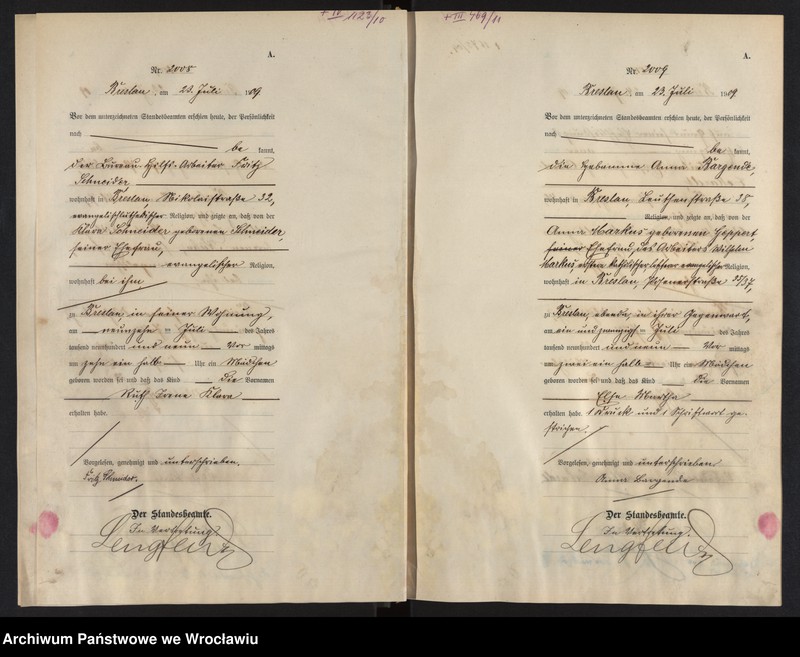 + IV 1123/10
A.
Nr. 2008
Breslau, am 23. Juli 1909
Vor dem unterzeichneten Standesbeamten erschien heute, der Persönlichkeit
nach be kannt,
der Bureau-Hilfs-Arbeiter Fritz
Schneider,
wohnhaft in Breslau, Nikolaistraße 32,
Religion, und zeigte an, daß von der
Klara Schneider geborenen Schneider,
seiner Ehefrau,
evangelischer Religion,
wohnhaft bei ihm
zu Breslau, in seiner Wohnung,
am neunzehn = Juli des Jahres
tausend neunhundert und neun Vor mittags
um zehn ein halb Uhr ein Mädchen
geboren worden sei und daß das Kind die Vornamen
Ruth Irene Klara
erhalten habe.
Vorgelesen, genehmigt und unterschrieben.
Fritz Schneider.
Der Standesbeamte.
In Vertretung.
+ III 469/11
A.
Nr. 2009
Breslau, am 23. Juli 1909
Vor dem unterzeichneten Standesbeamten erschien heute, der Persönlichkeit
nach be kannt,
die Hebamme Anna Bargende,
wohnhaft in Breslau, Leuthenstraße 38,
Religion, und zeigte an, daß von der
Anna Markus geborenen Hoppert,
seiner Ehefrau des Arbeiters Wilhelm
Markus, Religion,
wohnhaft in Breslau, Posenerstraße
zu Breslau, ebenda, in ihrer Gegenwart,
am ein und zwanzigst = Juli des Jahres
tausend neunhundert und neun Vor mittags
um zwei ein halb Uhr ein Mädchen
geboren worden sei und daß das Kind die Vornamen
Else Martha
erhalten habe. 1 Druck und 1 Schriftwort ge-
strichen.
Vorgelesen, genehmigt und unterschrieben
Anna Bargende
Der Standesbeamte.
In Vertretung.
Archiwum Państwowe we Wrocławiu